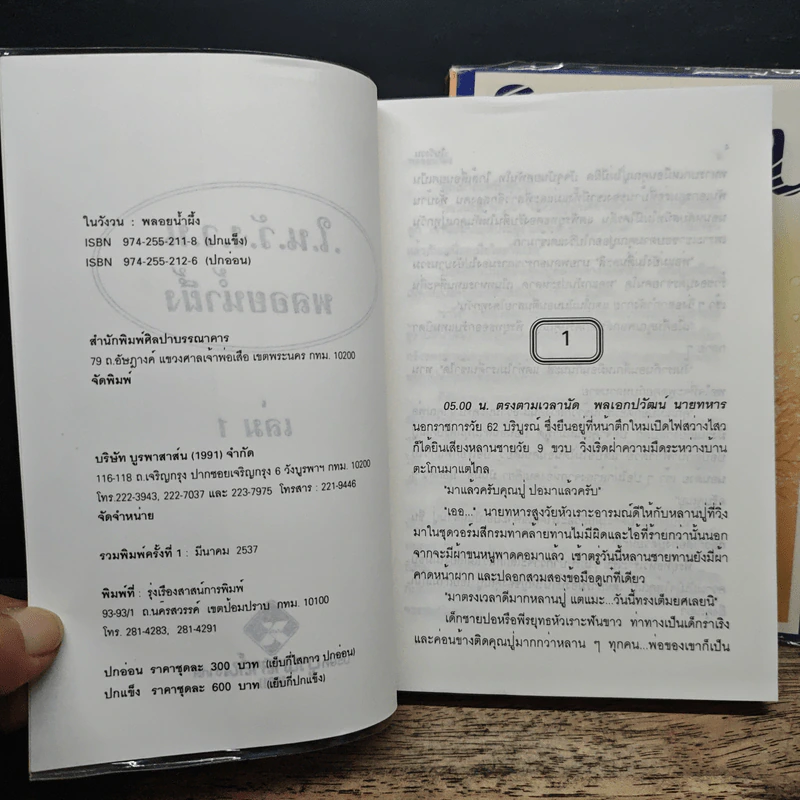 ในวังวน : พลอยน้ำผึ้ง
ISBN 974-255-211-8 (ปกแข็ง)
ISBN 974-255-212-6 (ปกอ่อน)
สำนักพิมพ์ศิลปาบรรณาคาร
79 ถ.อัษฎางค์ แขวงศาลเจ้าพ่อเสือ เขตพระนคร กทม. 10200
จัดพิมพ์
บริษัท บูรพาสาส์น (1991) จำกัด
116-118 ถ.เจริญกรุง ปากซอยเจริญกรุง 6 วังบูรพาฯ กทม. 10200
โทร.222-3943, 222-7037 และ 223-7975 โทรสาร : 221-9446
จัดจำหน่าย
รวมพิมพ์ครั้งที่ 1 : มีนาคม 2537
พิมพ์ที่ : รุ่งเรืองสาสน์การพิมพ์
93-93/1 ถ.นครสวรรค์ เขตป้อมปราบ กทม. 10100
โทร. 281-4283, 281-4291
ปกอ่อน ราคาชุดละ 300 บาท (เย็บกี่ไสกาว ปกอ่อน)
ปกแข็ง ราคาชุดละ 600 บาท (เย็บกี่ปกแข็ง)
1
05.00 น. ตรงตามเวลานัด พลเอกปวัฒน์ นายทหาร
นอกราชการวัย 62 บริบูรณ์ ซึ่งยืนอยู่ที่หน้าตึกใหม่เปิดไฟสว่างไสว
ก็ได้ยินเสียงหลานชายวัย 9 ขวบ วิ่งเริดฝ่าความมืดระหว่างบ้าน
ตะโกนมาแต่ไกล
"มาแล้วครับคุณปู่ ปอมาแล้วครับ"
"เออ..." นายทหารสูงวัยหัวเราะอารมณ์ดีให้กับหลานปู่ที่วิ่ง
มาในชุดวอร์มสีกรมท่าคล้ายท่านไม่มีผิดและไอ้ที่ร้ายกว่านั้นนอก
จากจะมีผ้าขนหนูพาดคอมาแล้ว เช้าตรู่วันนี้หลานชายท่านยังมีผ้า
คาดหน้าผาก และปลอกสวมสองข้อมือดูเก้ทีเดียว
"มาตรงเวลาดีมากหลานปู่ แต่แมะ...วันนี้ทรงเต็มยศเลยนิ"
เด็กชายปอหรือพีรยุทธหัวเราะฟันขาว ท่าทางเป็นเด็กร่าเริง
และค่อนข้างติดคุณปู่มากกว่าหลาน ๆ ทุกคน...พ่อของเขาก็เป็น